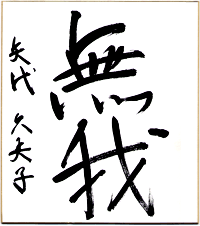 無我
矢代久夫子